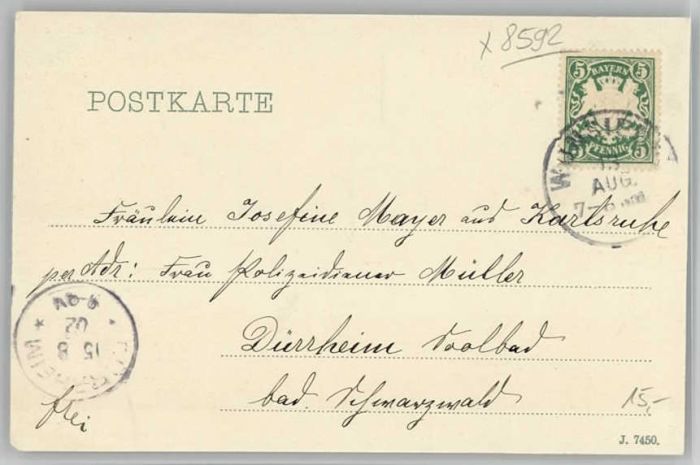 x 8592
POSTKARTE
5 BAYERN 5
5 PFENNIG 5
AUG.
7-8
Fräulein Josefine Mayer aus Karlsruhe
per Adr: Frau Polizeidiener Müller
Dürrheim Soolbad
bad. Schwarzwald
frei
15,-
DÜRRHEIM
15 8
02
J. 7450.